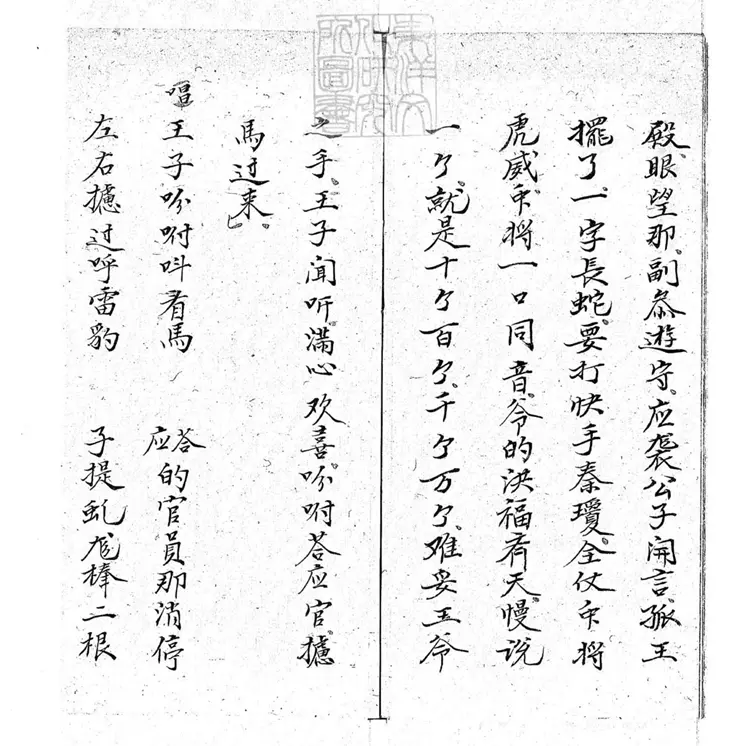 殿、眼望那、副叅遊守、应袭公子開言、孤王
擺了、一字長蛇、要打快手秦瓊、全仗衆將
虎威、衆將一口同音、爷的洪福齐天、慢说
一个、就是十个百个、千个万个、难妥王爷
之手、王子闻听、满心欢喜、吩咐荅应官、攄
馬过来、
唱王子吩咐呌看馬　应荅的官員那消停
左右攄过呼雷豹　子提虬龙棒二根
東洋文化研究所圖書